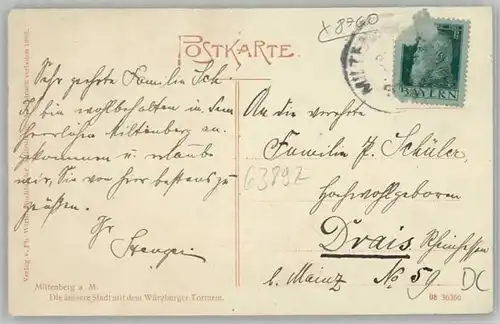 x 8960
POSTKARTE
MILTE
BAYERN
Sehr geehrte Familie Sch!
Ich bin wohlbehalten in dem
herrlichen Miltenberg an-
gekommen u. erlaube
mir, Sie von hier bestens zu
grüßen.
Ihr
An die verehrte
Familie P. Schüler,
Hochwohlgeboren
Drais, Rheinhessen
b. Mainz No 59
6389Z
DC
Miltenberg a M.
Die äussere Stadt mit dem Würzburger Torturm.
08 36366
Verlag v. Fr.